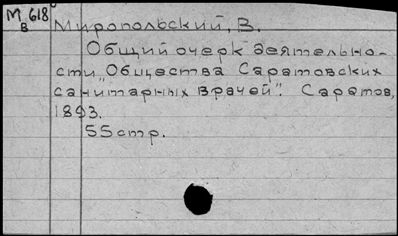 М 618
в
Миропольский, В.
Общий очерк деятельно-
сти „Общества Саратовских
санитарных врачей". Саратов,
1893.
55 стр.